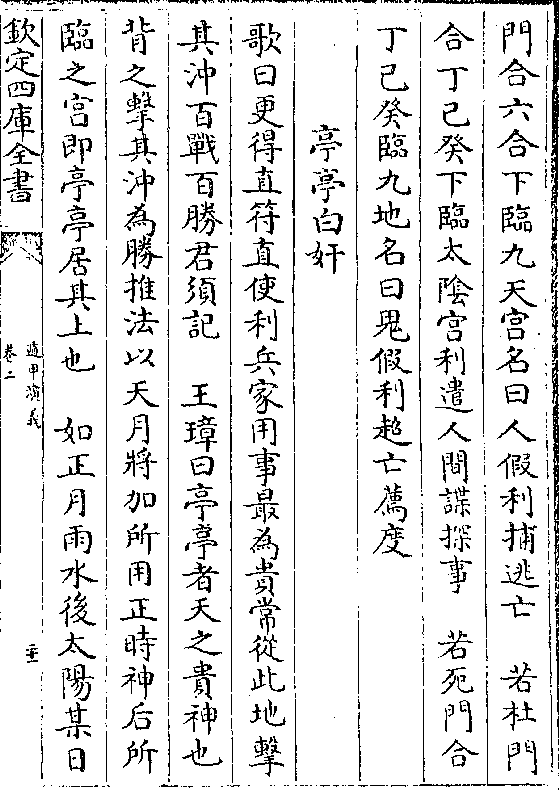 門合六合下臨九天宮名曰人假利捕逃亡　若杜門
合丁己癸下臨太陰宮利遣人間諜探事　若死門合
丁己癸臨九地名曰鬼假利超亡薦度
亭亭白奸
歌曰更得直符直使利兵家用事最為貴常從此地擊
其沖百戰百勝君須記　王璋曰亭亭者天之貴神也
背之擊其沖為勝推法以天月將加所用正時神后所
臨之宮即亭亭居其上也　如正月雨水後太陽某日
欽定四庫全書
遁甲演義
卷二